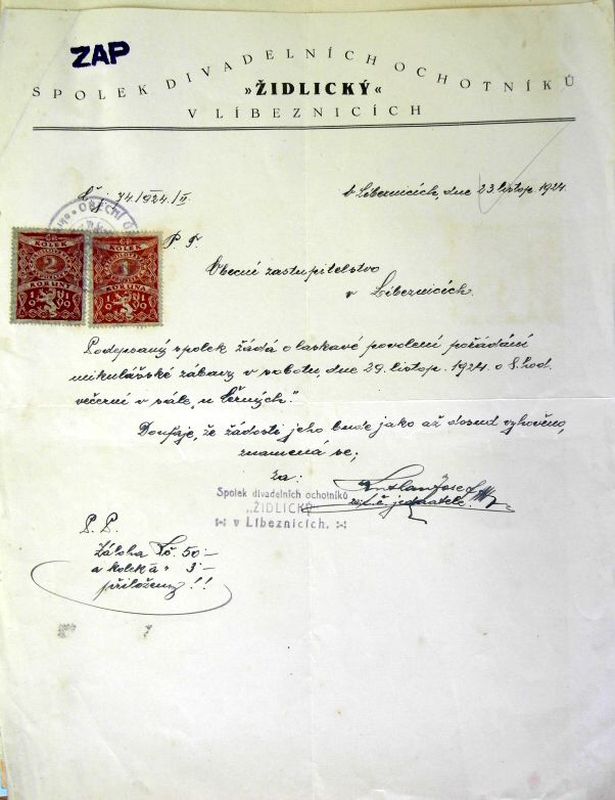 ZAP
SPOLEK DIVADELNÍCH OCHOTNÍKŮ
»ŽIDLICKÝ«
V LÍBEZNICÍCH
Čj. 74/1924/II.
v Líbeznicích, dne 23. listop. 1924.
OBECNÍ
KOLEK
2
KORUNY
KOLEK
1
KORUNA
P. T.
Obecní zastupitelstvo
v Líbeznicích.
Podepsaný spolek žádá o laskavé povolení pořádání
mikulášské zábavy v sobotu, dne 29. listop. 1924 o 8. hod.
večerní v sále „u Černých."
Doufaje, že žádosti jeho bude jako až dosud vyhověno,
znamená se;
Za:
Spolek divadelních ochotníků
„ŽIDLICKÝ"
v Líbeznicích.
Josef
t. č. jednatel.
P. P.
Záloha Kč 50·–
a kolek á „ 3·–
přiloženy!!